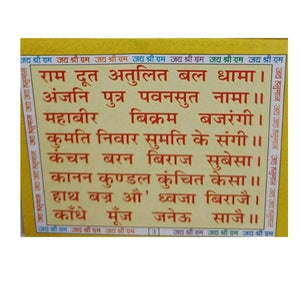 जय श्री राम जय श्री राम जय श्री राम जय श्री राम
राम दूत अतुलित बल धामा।
अंजनि पुत्र पवनसुत नामा।।
महाबीर बिक्रम बजरंगी।
कुमति निवार सुमति के संगी।।
कंचन बरन बिराज सुबेसा।
कानन कुण्डल कुंचित केसा।।
हाथ बज्र औ' ध्वजा बिराजै।
काँधे मूँज जनेऊ साजै।।
जय श्री राम जय श्री राम 3 जय श्री राम जय श्री राम